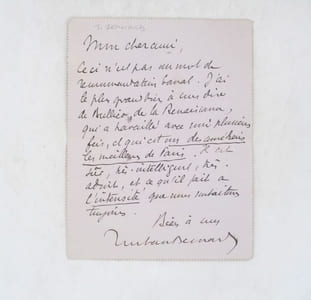 Mon cher ami,
Ceci n'est pas un mot de
recommandation banal. J'ai
le plus grand bien à vous dire
de Bulliéo, de la Renaissance,
qui a travaillé avec moi plusieurs
fois, et qui est un des
les meilleurs de Paris. Il est
très, très-intelligent, très-
adroit, et ce qu'il fait a
l'intensité que nous souhaitons
toujours.
Bien à vous
Tristan Bernard